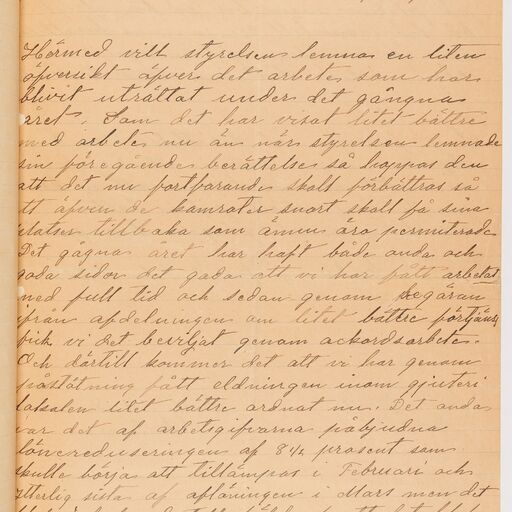 Härmed vill styrelsen lemna en liten
öfversikt öfver det arbete som har
blivit uträttat under det gångna
året. Som det har visat litet bättre
med arbete nu än när styrelsen lemnade
sin föregående berättelse så hoppas den
att det nu fortfarande skall förbättras så
att äfven de kamrater snart skall få sina
platser tillbaka som ännu äro permiterade
Det gågna året har haft både onda och
goda sidor det goda att vi har fått arbetat
med full tid och sedan genom begäran
ifrån afdelningen om litet bättre förtjänst
fick vi det beviljat genom ackordsarbete.
Och därtill kommer det att vi har genom
påstötning fått eldningen inom gjuteri
lokalen litet bättre ordnat nu. Det onda
var det af arbetsgifvarna påbjudna
lönereduseringen af 8½ prosent som
skulle börja att tillämpas i Februari och
ytterlig sista af aflöningen i Mars men det